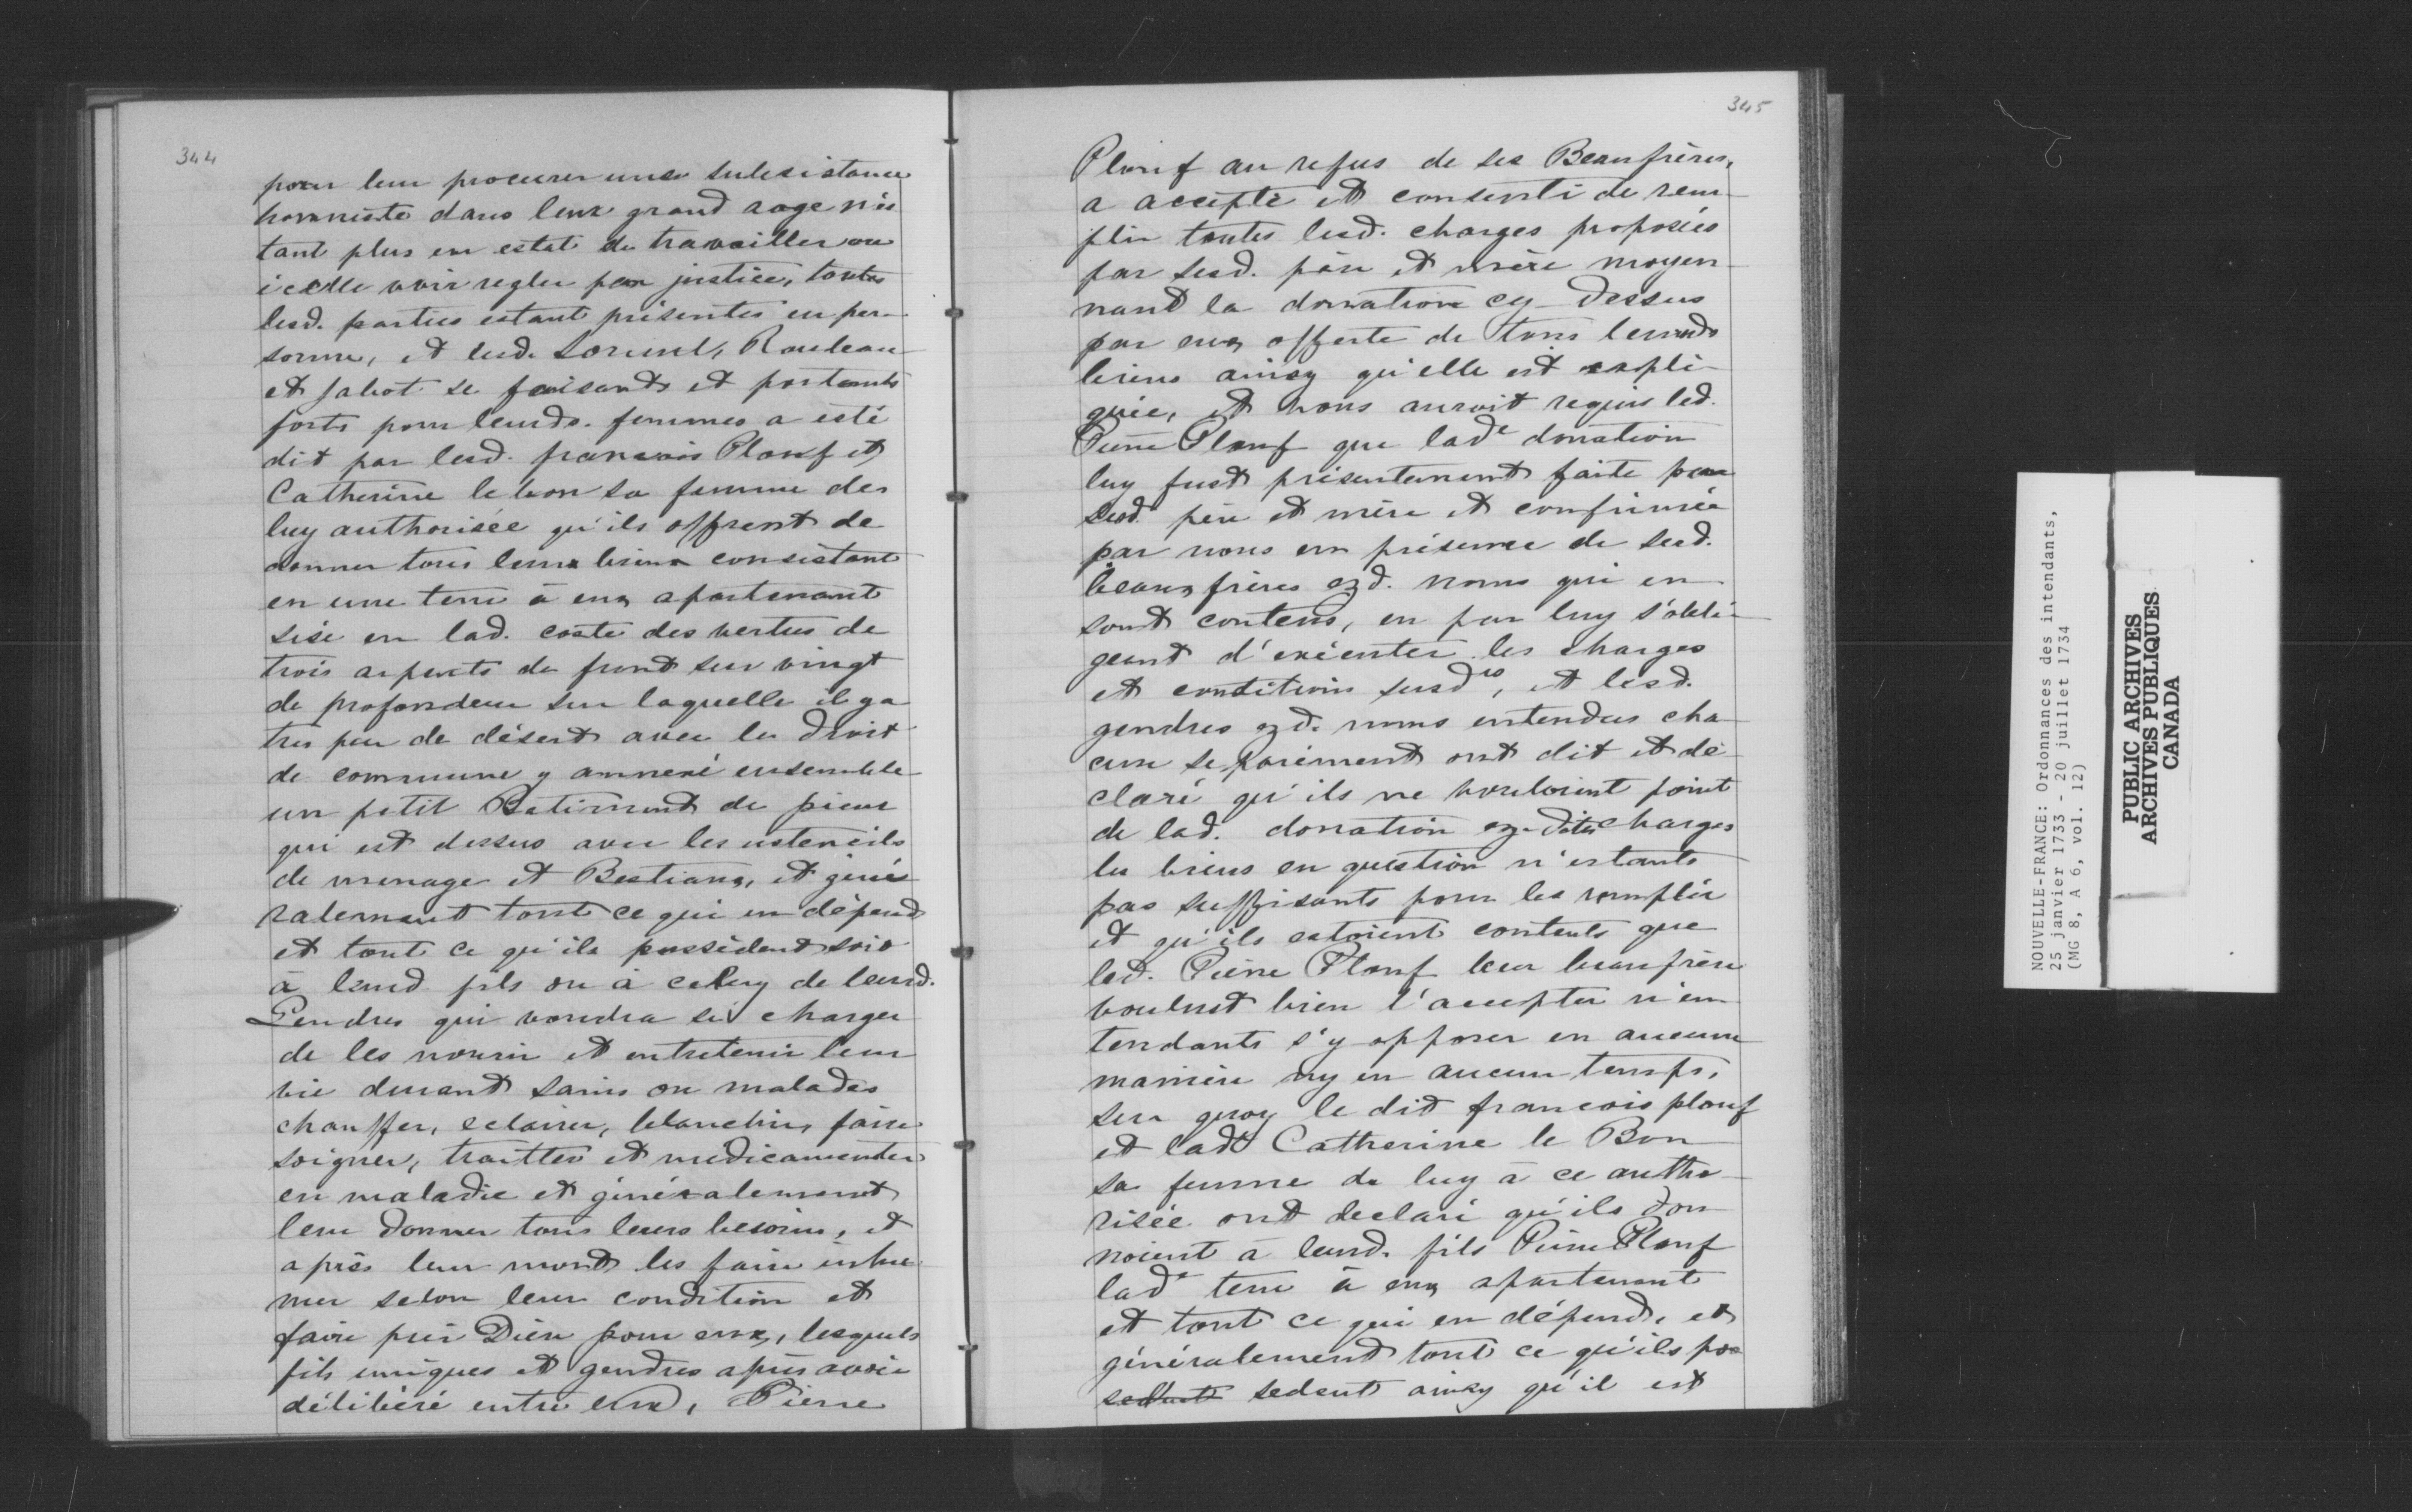 344
pour leur procurer une subsistance
honneste dans leur grand aage n'es
tant plus en estat de travailler ou
icelle voir regler par justice, toutes
lesd. parties estant présentes en per-
sonne, et lesd. Rouleau
et Jabot se faisants et portants
forts pour leursd. femmes a esté
dit par lesd. francois Plouf et
Catherine le bon sa femme de
luy authorisée qu'ils offrent de
donner tous leurs biens consistant
en une terre à eux apartenant
sise en lad. coste des vertus de
trois arpents de front sur vingt
de profondeur sur laquelle il y a
tres peu de désert avec le droit
de commune y annexé ensemble
un petit Batiment de pieux
qui est dessus avec les ustencils
de menage et Bestiaux, et géné
ralement tout ce qui en dépend
et tout ce qu'ils possèdent soit
à leurd fils ou à celuy de leursd.
Gendres qui voudra se charger
de les nourir et entretenir leur
vie durant sains ou malades
chauffer, eclairer, blanchir, faire
soigner, traitter et médicamenter
en maladie et généralement
leur donner tous leurs besoins, et
après leur mort les faire inhu
mer selon leur condition et
faire prier Dieu pour eux, lesquels
fils uniques et gendres après avoir
délibéré entre eux, Pierre
345
Plouf au refus de ses Beaufrères,
a accepté et consenti de rem-
plir toutes lesd. charges proposées
par sesd. père et mère moyen-
nant la donation cy-dessus
par eux offerte de tous leursd
biens ainsy qu'elle est expli-
quée, et nous auroit requis led.
Pierre Plouf que lade donation
luy fust présentement faite par
sesd. père et mère et confirmée
par nous en présence de sesd.
beaux frères ezd. noms qui en
sont contens, en par luy s'obli-
geant d'exécuter les charges
et conditions susdes, et lesd.
gendres ezd. noms entendus cha-
cun separément ont dit et dé-
claré qu'ils ne vouloient point
de lad. donation ezdites charges
les biens en question n'estants
pas suffisants pour les remplir
et qu'ils estoient contents que
led. Pierre Plouf leur beaufrère
voulust bien l'accepter n'en
tendants s'y opposer en aucune
manière ny en aucun temps,
sur quoy le dit francois plouf
et lade Catherine le Bon
sa femme de luy à ce autho-
risée ont declaré qu'ils don
noient à leurd. fils Pierre Plouf
lade terre à eux apartenant
et tout ce qui en dépend, et
généralement tout ce qu'ils pos
sedent sedent ainsy qu'il est
NOUVELLE-FRANCE: Ordonnances des intendants,
25 janvier 1733 - 20 juillet 1734
(MG 8, A 6, vol. 12)
PUBLIC ARCHIVES
ARCHIVES PUBLIQUES
CANADA